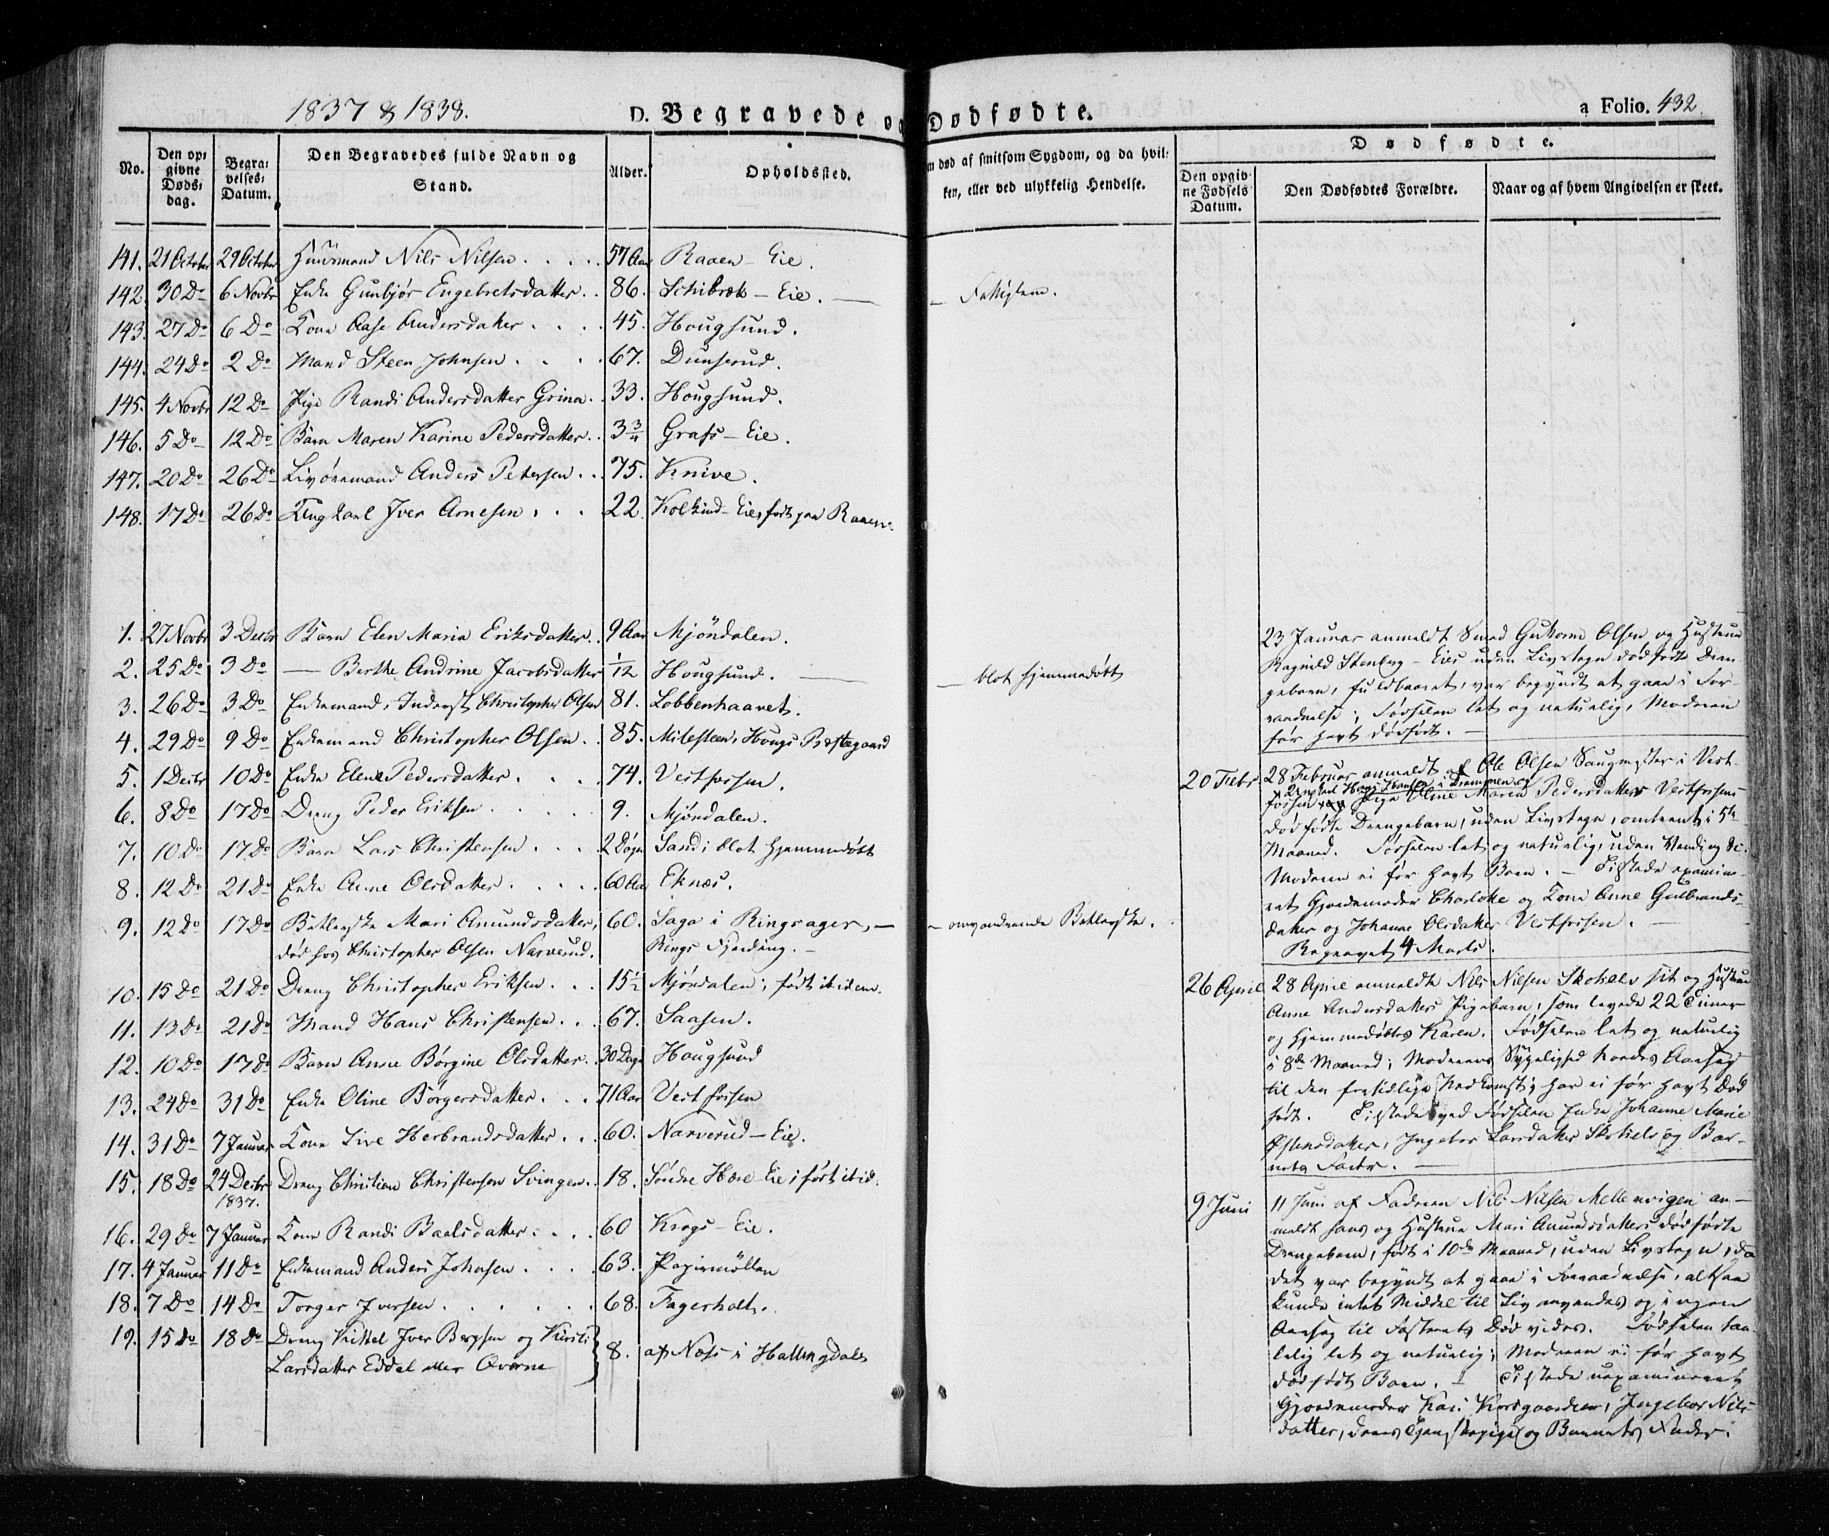 1837 & 1838.
D. Begravede og Dødfødte.
a Folio. 432
No.
Den opgivne Dødsdag.
Begravelses Datum.
Den Begravedes fulde Navn og Stand.
Alder.
Opholdssted.
død af smitsom Sygdom, og da hvilken, eller ved ulykkelig Hendelse.
Dødfødte.
Den opgivne Fødsels Datum.
Den Dødfødtes Forældre.
Naar og af hvem Angivelsen er skeet.
141. 21 October 29 October Huusmand Nils Nilsen 57 Aar Raaen-Eie.
142. 30 Do 6 Novbr Enke Gunbjør Engebretsdatter 86. Schibrek-Eie. — Fattiglem.
143. 27 Do 6 Do Kone Aase Andersdatter 45. Hougsund.
144. 24 Do 2 Do Mand Steen Johnsen 67. Dunserud.
145. 4 Novbr 12 Do Pige Randi Andersdatter Grina 33. Hougsund.
146. 5 Do 12 Do Barn Maren Karine Pedersdatter 3 3/4 Grafs-Eie.
147. 20 Do 26 Do Livøremand Anders Petersen 75. Knive.
148. 17 Do 26 Do Ungkarl Iver Arnesen 22. Kolkind-Eie, født paa Raaen
1. 27 Novbr 3 Decbr Barn Elen Maria Eriksdatter 9 Aar Mjøndalen.
2. 25 Do 3 Do — Berthe Andrine Jacobsdatter 1/12 Hougsund. — blot hjemmedøbt
3. 26 Do 3 Do Enkemand, Inderst Christopher Olsen 81. Lobbenhaavet.
4. 29 Do 9 Do Enkemand Christopher Olsen 85. Milesteen, Hougs Præstegaard
5. 1 Decbr 10 Do Enke Elene Pedersdatter 74. Vestfossen.
6. 8 Do 17 Do Dreng Peder Eriksen 9. Mjøndalen.
7. 10 Do 17 Do Barn Lars Christensen 2 Dage Sand; blot hjemmedøbt
8. 12 Do 21 Do Enke Anne Olsdatter 60 Aar Eknæs.
9. 12 Do 17 Do Betlerske Mari Amundsdatter, 60. Saga i Ringsager, — omvandrende Betlerske.
død hos Christopher Olsen Narverud. Rings Fjerding. —
10. 15 Do 21 Do Dreng Christopher Eriksen 15 1/2 Mjøndalen; født ibidem.
11. 13 Do 21 Do Mand Hans Christensen 67. Saasen.
12. 10 Do 17 Do Barn Anne Børgine Olsdatter 30 Dage Hougsund
13. 24 Do 31 Do Enke Oline Børgersdatter 71 Aar Vestfossen
14. 31 Do 7 Januar Kone Live Herbrandsdatter 60. Narverud-Eie.
15. 18 Do 24 Decbr 1837. Dreng Christian Christensen Svingen 18. Søndre Hære-Eie; født ibid.
16. 29 Do 7 Januar Kone Randi Baalsdatter 60 Krogs-Eie.
17. 4 Januar 11 Do Enkemand Anders Johnsen 63. Papirmøllen
18. 7 Do 14 Do Torger Iversen 68. Fagerholt.
19. 15 Do 18 Do Dreng Kittel Iver Bergsen og Kirsti 8. af Næss i Hallingdal
Larsdatter Eddal eller Øverne
23 Januar anmeldt Smed Guttorm Olsen og Hustrue
Ragnild Stenberg-Eies uden Livstegn dødfødte Dren-
gebarn, fuldbaaret, var begyndt at gaae i For-
raadnelse; Fødselen let og naturlig, Moderen
før havt dødfødt. —
20 Febr 28 Februar anmeldt af Ole Olsen Saugmester i Vest-
fossen Pige Oline Maren Pedersdatters Vestfossens
dødfødte Drengebarn, uden Livstegn, omtrent i 5te
Maaned. Fødselen let og naturlig, uden Vending
Moderen ei før havt Barn. — Tilstede examine-
ret Gjordemoder Charlotte og Kone Anne Gulbrands-
datter og Johanne Olsdatter Vestfossen. —
Begravet 4 Marts.
26 April 28 April anmeldte Nils Nilsen Skotsels sit og Hustrue
Anne Andersdatters Pigebarn, som levede 22 Timer
og hjemmedøbtes Karen. Fødselen let og naturlig
i 8de Maaned; Moderens Sygelighed troedes Aarsag
til den fretidlige Nedkomst; har ei før havt Død-
født. Tilstede ved Fødselen Enke Johanne Marie
Østensdatter, Ingebor Larsdatter Skotsels og Bar-
nets Fader. —
9 Juni 11 Juni af Faderen Nils Nilsen Mellemvigen an-
meldt hans og Hustrue Mari Amundsdatters dødfødte
Drengebarn, født i 10de Maaned, uden Livstegn, da
det var begyndt at gaae i Forraadnelse, altsaa
kunde intet Middel til Liv anvendes og ingen
Aarsag til Fosterets Død vides. Fødselen taa-
lelig let og naturlig; Moderen ei før havt
dødfødt Barn. — Tilstede uexamineret
Gjordemoder Kari Korsgaarden, Ingebor Nils-
datter, deres Tjenestepige og Barnets Fader.